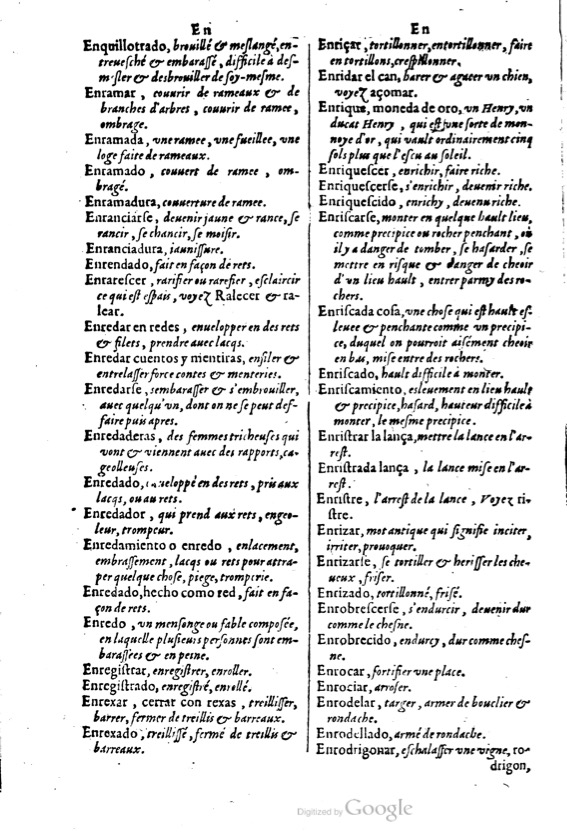 En
Enquillotrado, brouillé & meslangé, en-
treuesché & embarassé, difficile à des-
mesler & desbrouiller de soy-mesme.
Enramar, couurir de rameaux & de
branches d'arbres, couurir de ramee,
ombrage.
Enramada, vne ramee, vne fueillee, vne
loge faite de rameaux.
Enramado, couuert de ramee, om-
bragé.
Enramadura, couuerture de ramee.
Enranciarse, deuenir jaune & rance, se
rancir, se chancir, se moisir.
Enranciadura, jaunissure.
Enrendado, fait en façon de rets.
Enrarescer, rarifier ou rarefier, esclaircir
ce qui est espais, voyez Ralecer & ra-
lear.
Enredar en redes, enuelopper en des rets
& filets, prendre auec laqs.
Enredar cuentos y mentiras, enfiler &
entrelasser force contes & menteries.
Enredarse, sembarasser & s'embrouiller,
auec quelqu'vn, dont on ne se peut def-
faire puis apres.
Enredaderas, des femmes tricheuses qui
vont & viennent auec des rapports, ca-
geolleuses.
Enredado, enueloppé en des rets, pris aux
lacqs, ou au rets.
Enredador, qui prend aux rets, engeo-
leur, trompeur.
Enredamiento o enredo, enlacement,
embrassement, lacqs ou rets pour attra-
per quelque chose, piege, tromperie.
Enredado, hecho como red, fait en fa-
çon de rets.
Enredo, vn mensonge ou fable composée,
en laquelle plusieurs personnes sont em-
barassées & en peine.
Enregistrar, enregistrer, enroller.
Enregistrado, enregistré, enrollé.
Enrexar, cerrar con rexas, treillisser,
barrer, fermer de treillis & barreaux.
Enrexado, treillissé, fermé de treillis &
barreaux.
En
Enriçar, tortillonner, entortillonner, faire
en tortillons, crespillonner.
Enridar el can, harer & agacer un chien,
voyez açomar.
Enrique, moneda de oro, vn Henry, vn
ducat Henry, qui est vne sorte de mon-
noye d'or, qui vault ordinairement cinq
sols plus que l'escu au soleil.
Enriquescer, enrichir, faire riche.
Enriquescerse, s'enrichir, deuenir riche.
Enriquescido, enrichy, deuenu riche.
Enriscarse, monter en quelque hault lieu,
comme precipice ou rocher penchant, ou
il y a danger de tomber, se hasarder, se
mettre en risque & danger de cheoir
d'vn lieu hault, entrer parmy des ro-
chers.
Enriscada cosa, vne chose qui est haulte es-
leuee & penchante comme vn precipi-
ce, duquel on pourroit aisément cheoir
en bas, mise entre des rochers.
Enriscado, hault difficile à monter.
Enriscamiento, esleuement en lieu hault
& precipice, hasard, hauteur difficile à
monter, le mesme precipice.
Enristrar la lança, mettre la lance en l'ar-
rest.
Enristrada lança, la lance mise en l'ar-
rest.
Enristre, l'arrest de la lance, Voyez ri-
stre.
Enrizar, mot antique qui signifie inciter,
irriter, prouoquer.
Enrizarse, se tortiller & herisser les che-
ueux, friser.
Enrizado, tortillonné, frisé.
Enrobrescerse, s'endurcir, deuenir dur
comme le chesne.
Enrobrecido, endurcy, dur comme ches-
ne.
Enrocar, fortifier vne place.
Enrociar, arroser.
Enrodelar, targer, armer de bouclier &
rondache.
Enrodellado, armé de rondache.
Enrodrigonar, eschalasser vne vigne, ro-
drigon,
Digitized by Google